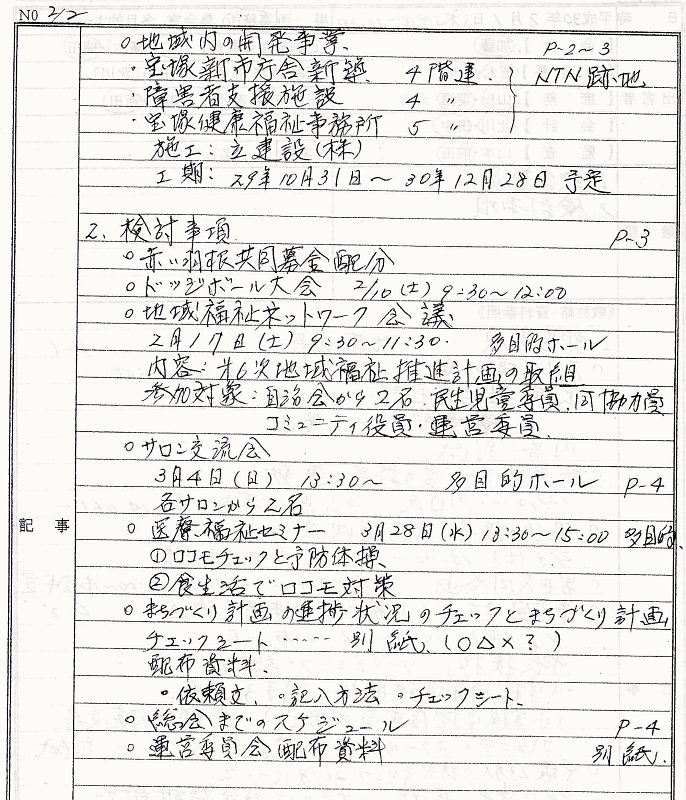 NO 2/2
○地域内の開発事業 P-2~3
・宝塚新市庁舎新築 4階建 NTN跡地
・障害者支援施設 4 〃
・宝塚健康福祉事務所 5 〃
施工: 立建設(株)
工期: 29年10月31日~30年12月28日 予定
2. 検討事項 P-3
○赤い羽根共同募金配分
○ドッジボール大会 2/10(土) 9:30~12:00
○地域福祉ネットワーク会議
2月17日(土) 9:30~11:30. 多目的ホール
内容: 第6次地域福祉推進計画の取組
参加対象: 自治会から2名. 民生児童委員. 同協力員
コミュニティ役員・運営委員.
○サロン交流会
3月4日(日) 13:30~ 多目的ホール P-4
各サロンから2名
記事
○医療.福祉セミナー 3月28日(水) 13:30~15:00 多目的.
①ロコモチェックと予防体操.
②食生活でロコモ対策
○まちづくり計画の進捗状況のチェックとまちづくり計画
チェックシート …… 別紙. (○△×?)
配布資料.
○依頼文. ○記入方法 ○チェックシート.
○総会までのスケジュール P-4
○運営委員会配布資料 別紙.